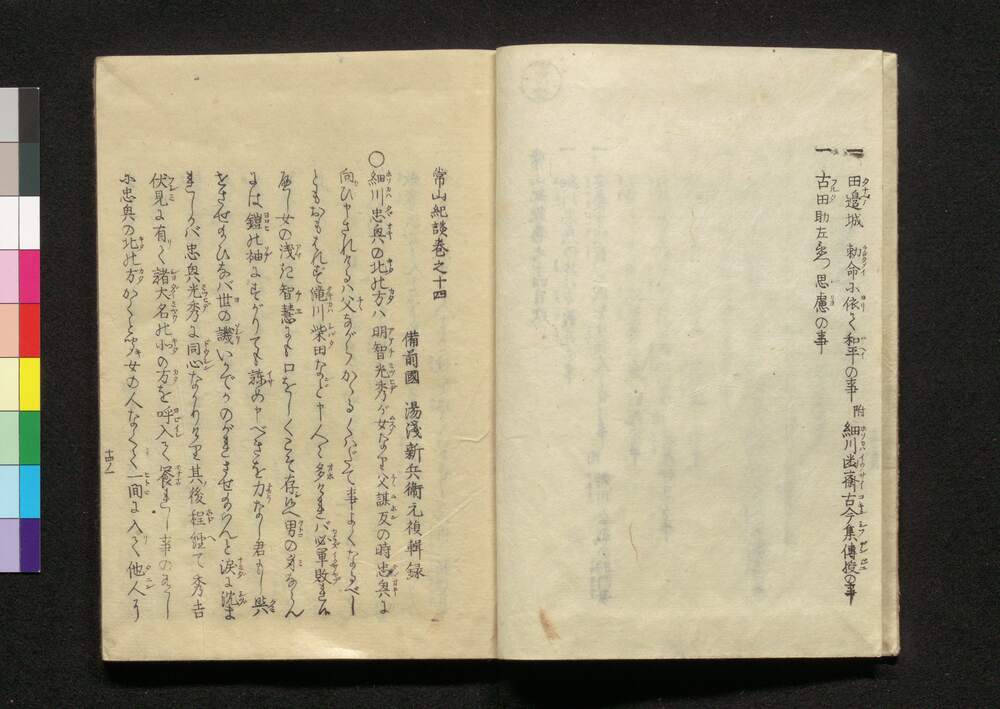 一 田邊城 勅命に依て和平の事 附 細川幽齋古今集傳授の事
一 古田助左衛門思慮の事
常山紀談巻之十四
備前國 湯淺新兵衛元禎輯録
○細川忠興の北の方ハ明智光秀が女なり父謀反の時忠興に
向ひ申されけるハ父ながらかゝるくはだて事よくなるべし
ともおもはれず滝川柴田など申人々多ければ必軍敗れ候
べし女の浅き智慧にも口をしくこそ存候へ男の身ならん
には鎧の袖にすがりても諫め申べきを力なし君もし與
せさせ給ひなば世の譏いかでかのがれさせ給はんと涙に沈ま
れしかバ忠興光秀に同心なかりけり其後程經て秀吉
伏見に有て諸大名の北の方を呼入て饗れし事のありし
に忠興の北の方かくと申女の人なくて一間に入て他人に
十四ノ一